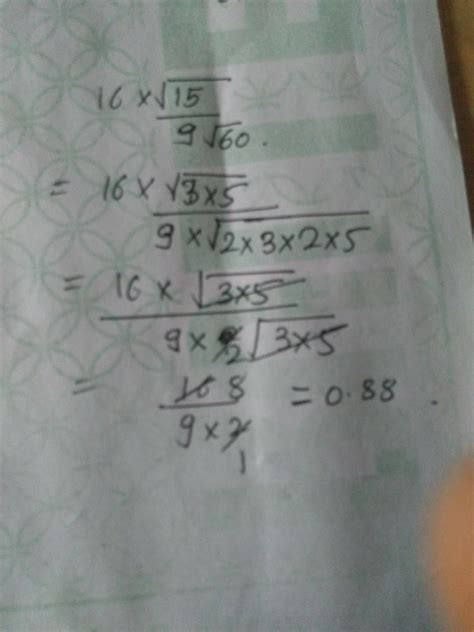 16 × √15
9√60.
= 16 × √3×5
9 × √2×3×2×5
= 16 × √3×5
9 × 2√3×5
= 16 8 = 0.88 .
9 × 2
1